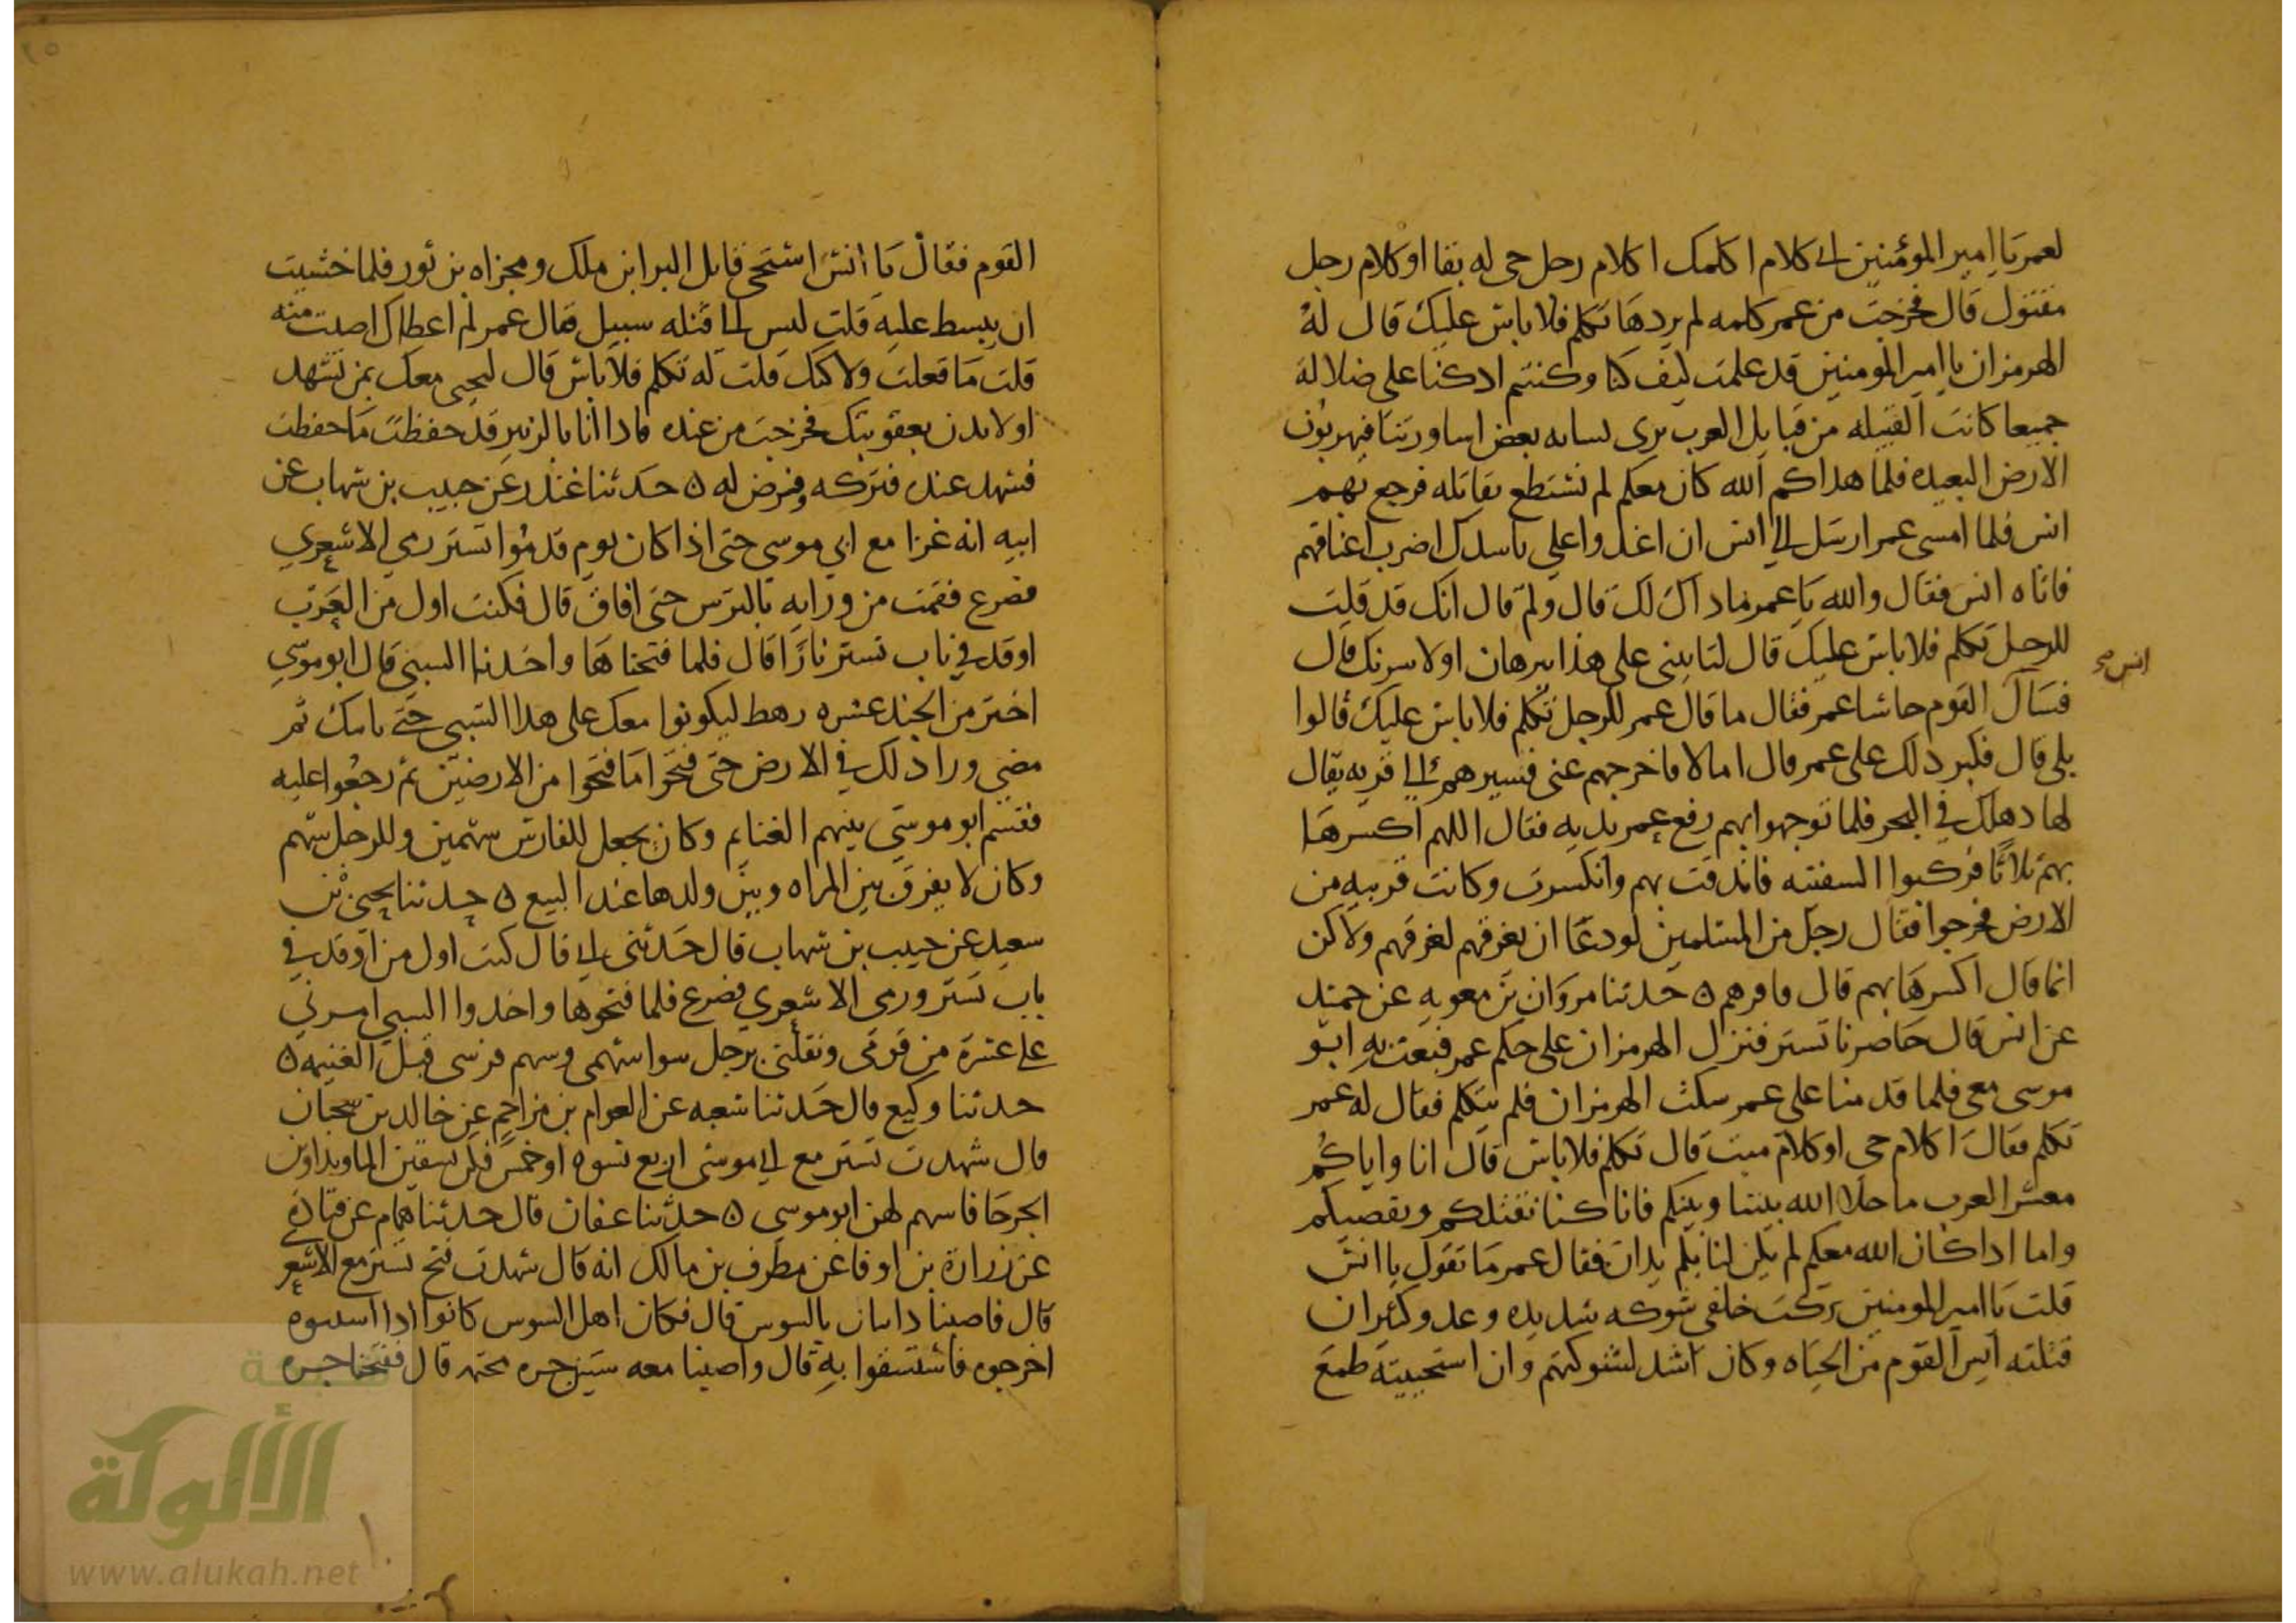 لعمر يا امير المؤمنين الي كلام اكلمك اكلام رجل حي له بقا او كلام رجل
مقتول قال فخرجت من عمر كلمه لم يردها تكلم فلا باس عليك قال له
الهرمزان يا امير المومنين قد علمت كيف كنا وكنتم اذ كنا على ضلالة
جميعا كانت القبيله من قبايل العرب يرى بعض اساورتنا فيهربون
الارض البعيده فلما هداكم الله كان معكم لم نستطع نقاتله فرجع بهم
انس فلما امسى عمر ارسل الي انس ان اغد واعلي اضرب اعناقهم
فاتاه انس فقال والله يا عمر ماداك لك قال ولم قال انك قد قلت
للرجل تكلم فلا باس عليك قال لتاتيني على هذا ببرهان او لاسونك قال
انس صح
فسال القوم جلسا عمر فقال ما قال عمر للرجل تكلم فلا باس عليك قالوا
بلى قال فكبر ذلك على عمر قال امالا فاخرجهم عني فسيرهم الي قريه يقال
لها دهلك في البحر فلما توجهوا بهم رفع عمر يديه فقال اللهم اكسرها
بهم ثلاثا فركبوا السفينه فاندقت بهم وانكسرت وكانت قريبه من
الارض فخرجوا فقال رجل من المسلمين لو دعا ان يغرقهم لغرقهم ولاكن
انما قال اكسرها بهم قال فاقرهم ه حدثنا مروان بن معويه عن حميد
عن انس قال حاصرنا تستر فنزل الهرمزان على حكم عمر فبعث به ابو
موسى معي فلما قدمنا على عمر سكت الهرمزان فلم يتكلم فقال له عمر
تكلم فقال اكلام حي او كلام ميت قال تكلم فلا باس قال انا واياكم
معشر العرب ما خلا الله بيننا وبينكم فانا كنا نقتلكم ونقصيكم
واما اذا كان الله معكم لم يكن لنا بكم يدان فقال عمر ما تقول يا انس
قلت يا امير المومنين تركت خلفي شوكه شديده وعدو كثير ان
قتلته ايس القوم من الحياه وكان اشد لشوكتهم وان استحييته طمع
القوم فقال يا انس استحي قاتل البرا بن ملك ومجزاه بن ثور فلما خشيت
ان يبسط عليه قلت ليس الي قتله سبيل فقال عمر لم اعطاك اصبت منه
قلت ما فعلت ولاكنك قلت له تكلم فلا باس قال لتجي معك بمن يشهد
او لابدن بعقوبتك فخرجت من عنده فاذا انا بالزبير قد حفظت ما حفظت
فشهد عنده فتركه وفرض له ه حدثنا غندر عن حبيب بن شهاب عن
ابيه انه غزا مع ابي موسى حتى اذا كان يوم قدموا تستر رمي الاشعري
فصرع فقمت من ورايه بالترس حتى افاق قال فكنت اول من العرب
اوقد في باب تستر نارا قال فلما فتحناها واخذنا السبي قال ابو موسى
اختر من الجند عشره رهط ليكونوا معك على هذا السبي حتى ناتيك ثم
مضى ورا ذلك في الارض حتى فتحوا ما فتحوا من الارضين ثم رجعوا عليه
فقسم ابو موسى بينهم الغنايم وكان يجعل للفارس سهمين وللرجل سهم
وكان لا يفرق بين المراه وبين ولدها عند البيع ه حدثنا يحيى بن
سعيد عن حبيب بن شهاب قال حدثني ابي قال كنت اول من اوقد في
باب تستر ورمي الاشعري فصرع فلما فتحوها واخذوا السبي امرني
على عشرة من قومي ونفلني برجل سوا سهمي وسهم فرسي قبل الغنيمه ه
حدثنا وكيع قال حدثنا شعبه عن العوام بن مزاحم عن خالد بن سيحان
قال شهدت تستر مع ابي موسى اربع نسوه او خمس فكن يسقين الما ويداوين
الجرحا فاسهم لهن ابو موسى ه حدثنا عفان قال حدثنا همام عن قتادة
عن زرارة بن اوفا عن مطرف بن مالك انه قال شهدت فتح تستر مع الاشعر
قال فاصبنا دانيال بالسوس قال فكان اهل السوس كانوا اذا اسنتوا
اخرجوه فاستسقوا به قال واصبنا معه ستين جره مختمه قال ففتحنا جره
شبكة
الألوكة
www.alukah.net